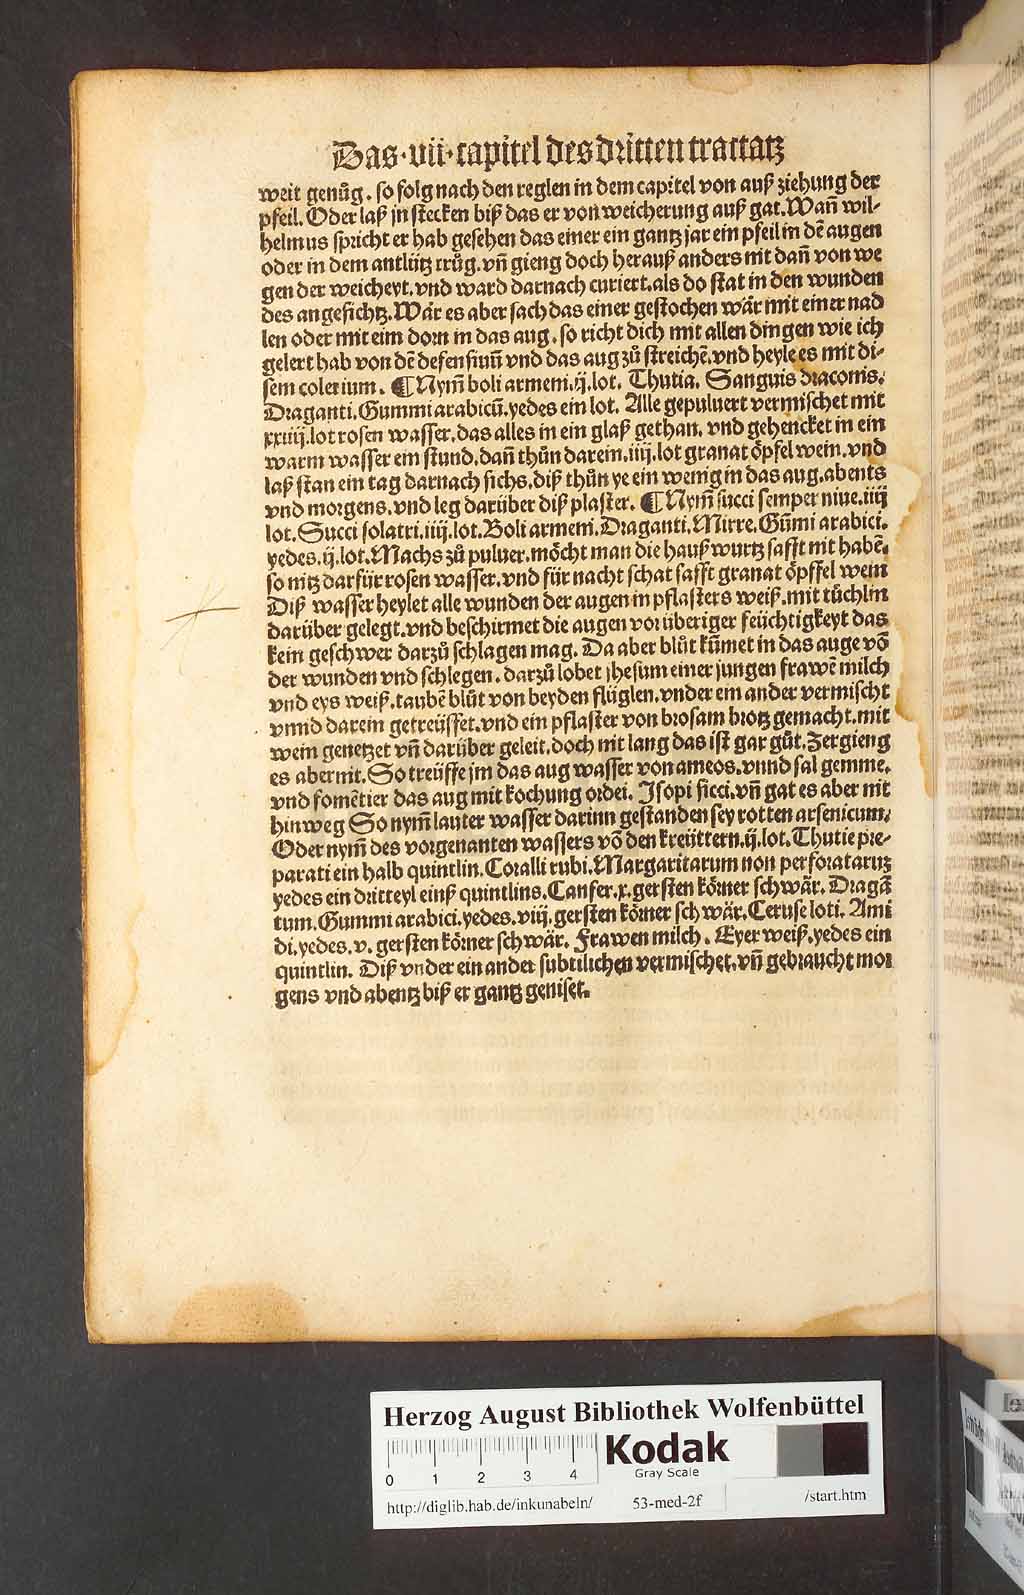 Das·vii·capitel des dritten tractatz
weit genůg. so folg nach den reglen in dem capitel von auß ziehung der
pfeil. Oder laß jn stecken biß das er von weicherung auß gat. Wan̄ wil-
helmus spricht er hab gesehen das einer ein gantz jar ein pfeil in dē augen
oder in dem antlütz trůg. vn̄ gieng doch herauß anders nit dan̄ von we
gen der weicheyt. vnd ward darnach curiert. als do stat in den wunden
des angesichtz. Wär es aber sach das einer gestochen wär mit einer nad
len oder mit eim dorn in das aug. so richt dich mit allen dingen wie ich
gelert hab von dē defensiuū vnd das aug zů streichē. vnd heyle es mit di-
sem colerium. ¶ Nym̄ boli armeni. ij. lot. Thutia. Sanguis draconis.
Draganti. Gummi arabicū. yedes ein lot. Alle gepuluert vermischet mit
xxiiij. lot rosen wasser. das alles in ein glaß gethan. vnd gehencket in ein
warm wasser ein stund. dan̄ thůn darein. iiij. lot granat öpfel wein. vnd
laß stan ein tag darnach sichs. diß thůn ye ein wenig in das aug. abents
vnd morgens. vnd leg darüber diß plaster. ¶ Nym̄ succi semper niue. iiij
lot. Succi solatri. iiij. lot. Boli armeni. Draganti. Mirre. Gūmi arabici.
yedes. ij. lot. Machs zů puluer. möcht man die hauß wurtz safft nit habē.
so nitz dar für rosen wasser. vnd für nacht schat safft granat öpffel wein
Diß wasser heylet alle wunden der augen in pflasters weiß. mit tůchlin
darüber gelegt. vnd beschirmet die augen vor überiger feüchtigkeyt das
kein geschwer darzů schlagen mag. Da aber blůt kūmet in das auge vō
der wunden vnd schlegen. darzů lobet jhesum einer jungen frawē milch
vnd eys weiß. taubē blůt von beyden flüglen. vnder ein ander vermischt
vnnd darein getreüffet. vnd ein pflaster von brosam brotz gemacht. mit
wein genetzet vn̄ darüber geleit. doch nit lang das ist gar gůt. Zergieng
es aber nit. So treüffe jm das aug wasser von ameos. vnnd sal gemme.
vnd fomētier das aug mit kochung ordei. Isopi sicci. vn̄ gat es aber nit
hinweg So nym̄ lauter wasser darinn gestanden sey rotten arsenicum.
Oder nym̄ des vorgenanten wassers vō den kreüttern. ij. lot. Thutie pre-
parati ein halb quintlin. Coralli rubi. Margaritarum non perforataruꝫ
yedes ein dritteyl einß quintlins. Canfer. x. gersten körner schwär. Dragā
tum. Gummi arabici. yedes. viij. gersten körner schwär. Ceruse loti. Ami
di. yedes. v. gersten körner schwär. Frawen milch. Eyer weiß. yedes ein
quintlin. Diß vnder ein ander subtilichen vermischet. vn̄ gebraucht mor
gens vnd abentz biß er gantz geniset.
Herzog August Bibliothek Wolfenbüttel
Kodak
Gray Scale
0 1 2 3 4
http://diglib.hab.de/inkunabeln/ 53-med-2f /start.htm